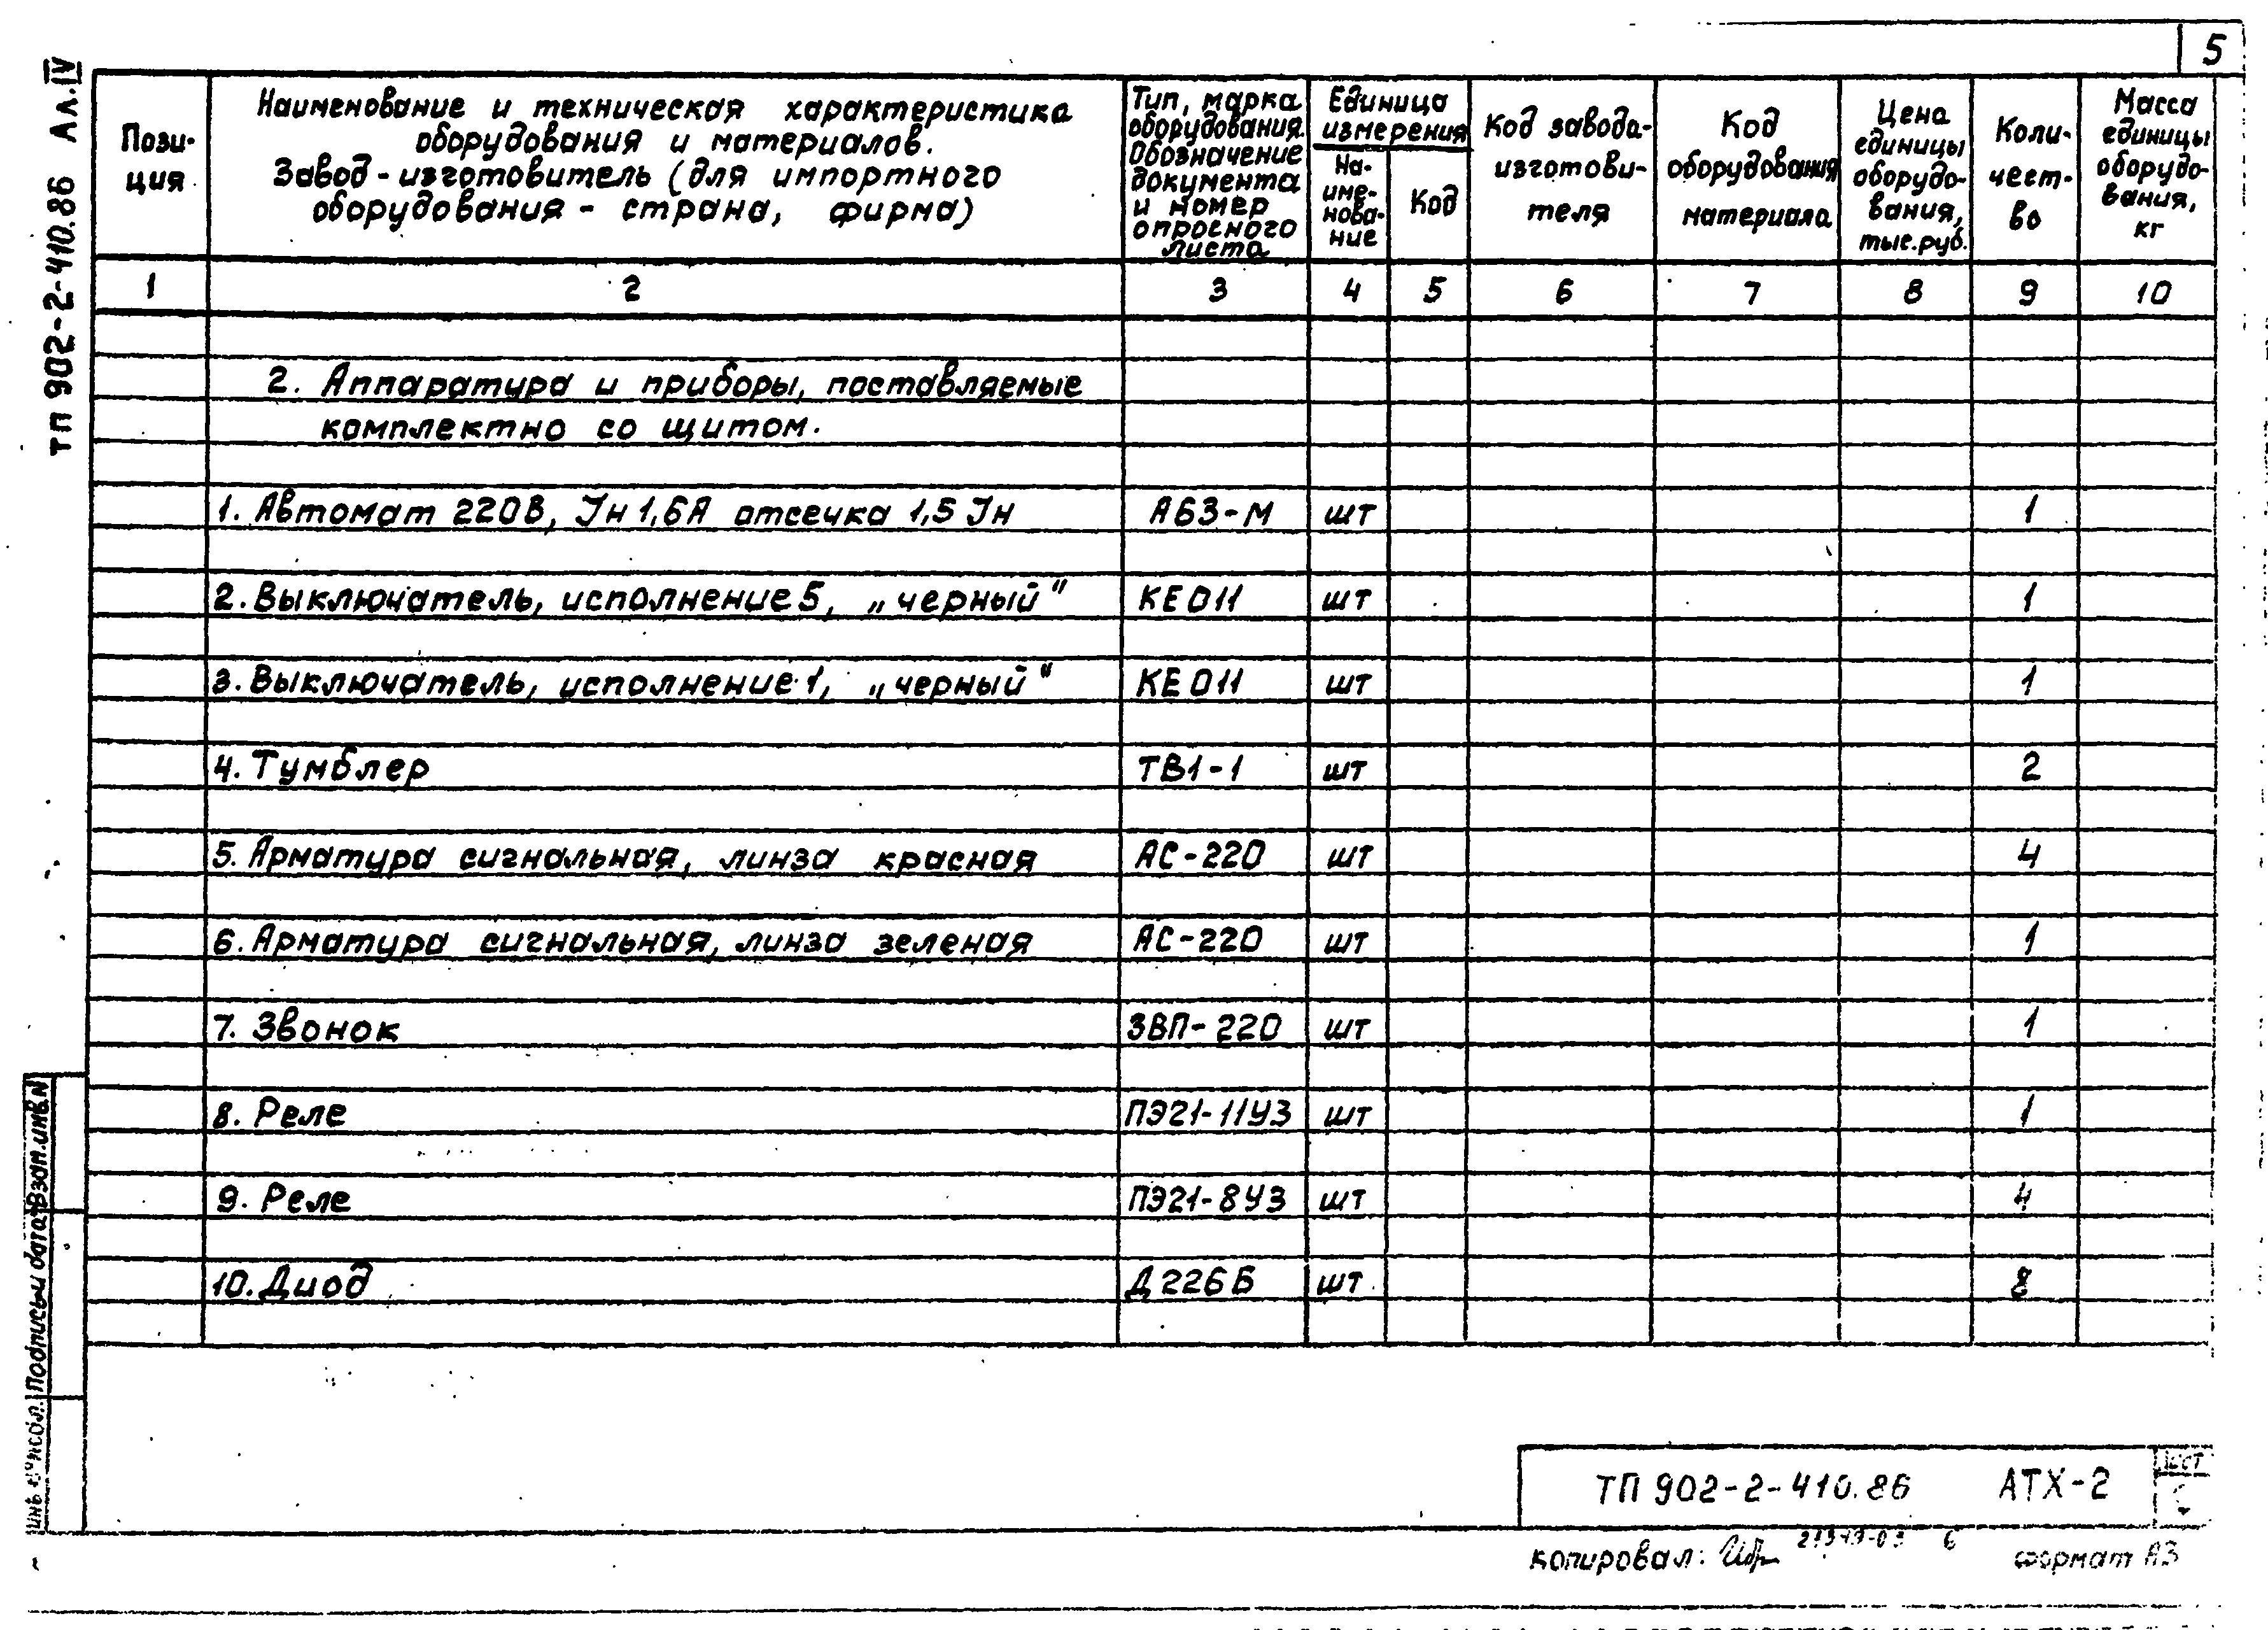 5
ТП 902-2-410.86 Ал.IV
Пози-
ция
Наименование и техническая характеристика
оборудования и материалов.
Завод-изготовитель (для импортного
оборудования - страна, фирма)
Тип, марка
оборудования.
Обозначение
документа
и номер
опросного
листа
Единица
измерения
На-
име-
нова-
ние
Код
Код завода-
изготови-
теля
Код
оборудования
материала
Цена
единицы
оборудо-
вания,
тыс.руб.
Коли-
чест-
во
Масса
единицы
оборудо-
вания,
кг
1 2 3 4 5 6 7 8 9 10
2. Аппаратура и приборы, поставляемые
комплектно со щитом.
1. Автомат 220В, Iн 1,6А отсечка 1,5 Iн А63-М шт 1
2. Выключатель, исполнение 5, „черный" КЕ011 шт 1
3. Выключатель, исполнение 1, „черный" КЕ011 шт 1
4. Тумблер ТВ1-1 шт 2
5. Арматура сигнальная, линза красная АС-220 шт 4
6. Арматура сигнальная, линза зеленая АС-220 шт 1
7. Звонок ЗВП-220 шт 1
8. Реле ПЭ21-11У3 шт 1
9. Реле ПЭ21-8У3 шт 4
10. Диод Д226Б шт 8
Взам.инв.N
Подпись и дата
ТП 902-2-410.86 АТХ-2
Лист
копировал: 6 формат А3